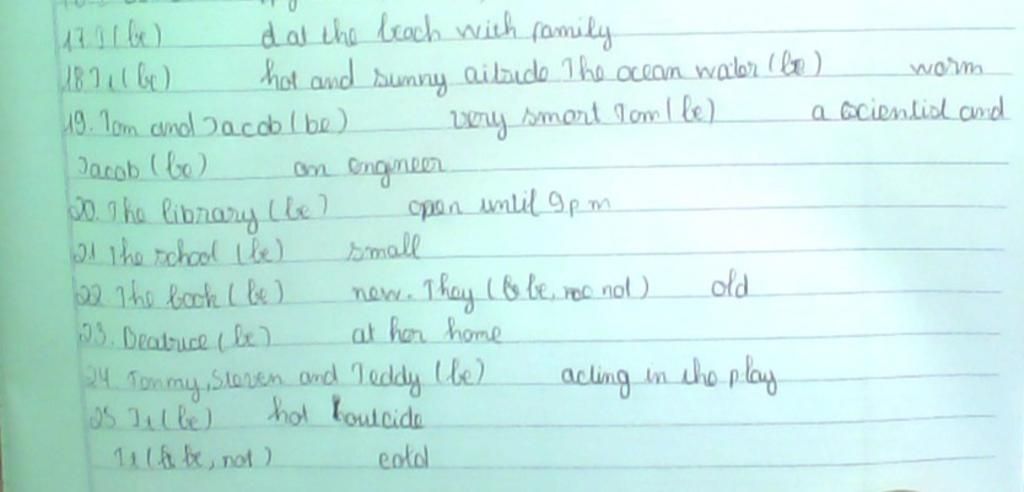 17. I (be) d at the beach with family
18. It (be) hot and sunny outside The ocean water (be) warm
19. Tom and Jacob (be) very smart Tom (be) a scientist and
Jacob (be) an engineer
20. The library (be) open until 9 pm
21 The school (be) small
22. The book (be) new. They (be, not) old
23. Beatrice (be) at her home
24. Tommy, Steven and Teddy (be) acting in the play
25 It (be) hot outside
It (be, not) cold